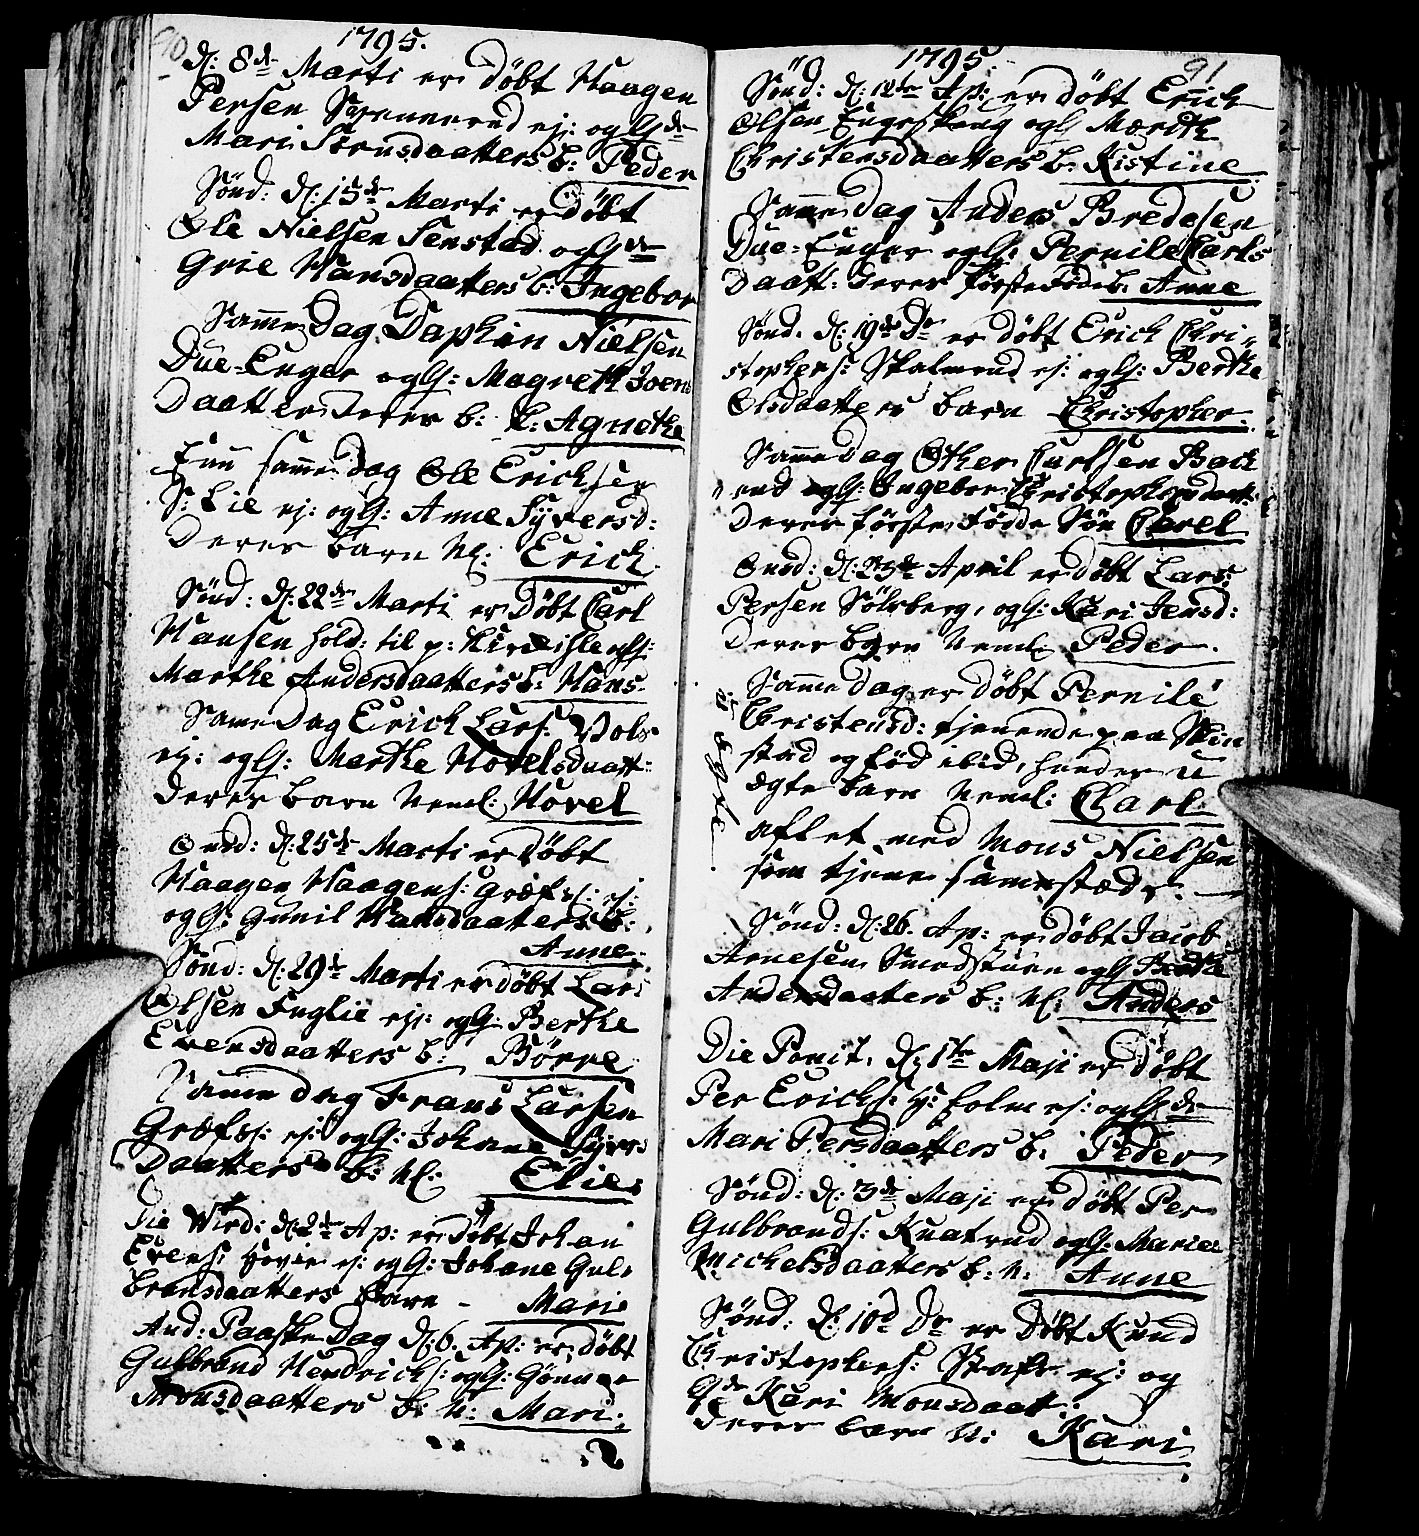 90
1795.
d: 8de Marti er döbt Haagen
Persen ej: og Gde
Mari Steensdaatters b: Peder
Sönd: d: 15de Marti er döbt
Ole Nielsen Senstad og Gde
Grie Hansdaatters b: Ingebor
Samme Dag Daphin Nielsen
Due-Enger og G: Magreth Joens
Daatter deres b: N: Agnethe
Enn samme dag Ole Erichsen
S: Lie ej: og G: Anne Syversd:
Deres barn Nl: Erich
Sönd: d: 22de Marti er Döbt Carl
Hansen hold: til p: og G:
Marthe Andersdaatters b: Hans.
Same Dag Erich Lars: Vols
ej: og G: Marthe Hovelsdaatt:
Deres barn Neml: Hovel
Onsd: d: 25de Marti er Döbt
Haagen Haagens: Græfs: ej:
og G: Gunil Hansdaatters b:
Anne.
Sönd: d: 29de Marti er döbt Lars
Olsen Fuglie ej: og G: Berthe
Evensdaatters b: Börre
Samme dag Frans Larsen
Græfs: ej: og G: Johane Syvers
Daatters b: Nl: Elie
Die Wird: d: 2de Ap: er Döbt Johan
Evens: ej: og G: Johane Gul-
bransdaatters barn - Marie
And: Paaske Dag d: 6. Ap: er döbt
Gulbrand Hendrichs: og G: Gönner
Monsdaatters b: N: Mari.
1795.
91
Sönd: d: 12te Ap: er döbt Erich
Olsen Engeskoug og G Marith
Christensdaatters b: Kistine
Samme dag Anders Bredesen
Due-Enger og G: Pernile Carls
Daatt: deres förste Födeb. Anne
Sönd. d: 19de Do er döbt Erich Chri-
stophers: Skalmrud ej: og G: Berthe
Olsdaatters barn Christopher.
Samme Dag Other Carlsen Back
rud og G: Ingebor Christophersdaat:
Deres förste Födde Sön Carel
Onsd: d: 23de April er döbt Lars
Persen Sölvberg, og G: Kari Jensd:
Deres barn Neml: Peder.
Samme dag er döbt Pernile
Christensd: tjenende paa Skin
stad og föd ibid, hendes u
ægte barn Neml: Carl
aflet med Mons Nielsen
som tjener sammestæds.
u ægte
Sönd: d: 26. Ap: er döbt Jacob
Arnesen Smedstuen og G Berthe
Andersdaatters b: Nl: Anders
Die Ponit. d: 1te Maji er döbt
Per Erichs: Holm ej: og Gde
Mari Persdaatters b. Peder
Sönd: d: 3de Maji er döbt Per
Gulbrands: Knatrud og G: Marie
Michelsdaatters b: N: Anne
Sönd: d: 10d Do er Döbt Knud
Christophers: ej: og
Gde Kari Monsdaat:
Deres barn N: Kari